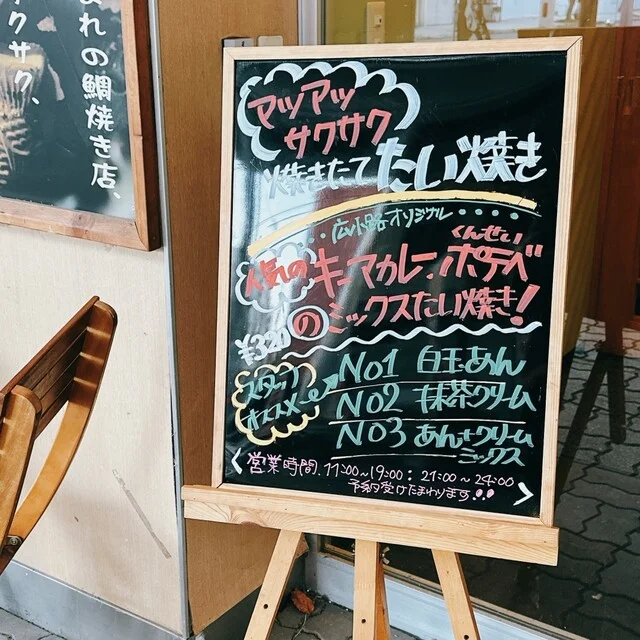 まれの鯛焼き店、
クサク、
アツアツ
サクサク
焼きたて たい焼き
広小路オリジナル
くんせい
人気の キーマカレー、ポテベ
¥320 のミックスたい焼き!
スタッフ
オススメ
No1 白玉あん
No2 抹茶クリーム
No3 あん+クリーム
ミックス
営業時間、11:00~19:00: 21:00~24:00
予約受けたまわります!!